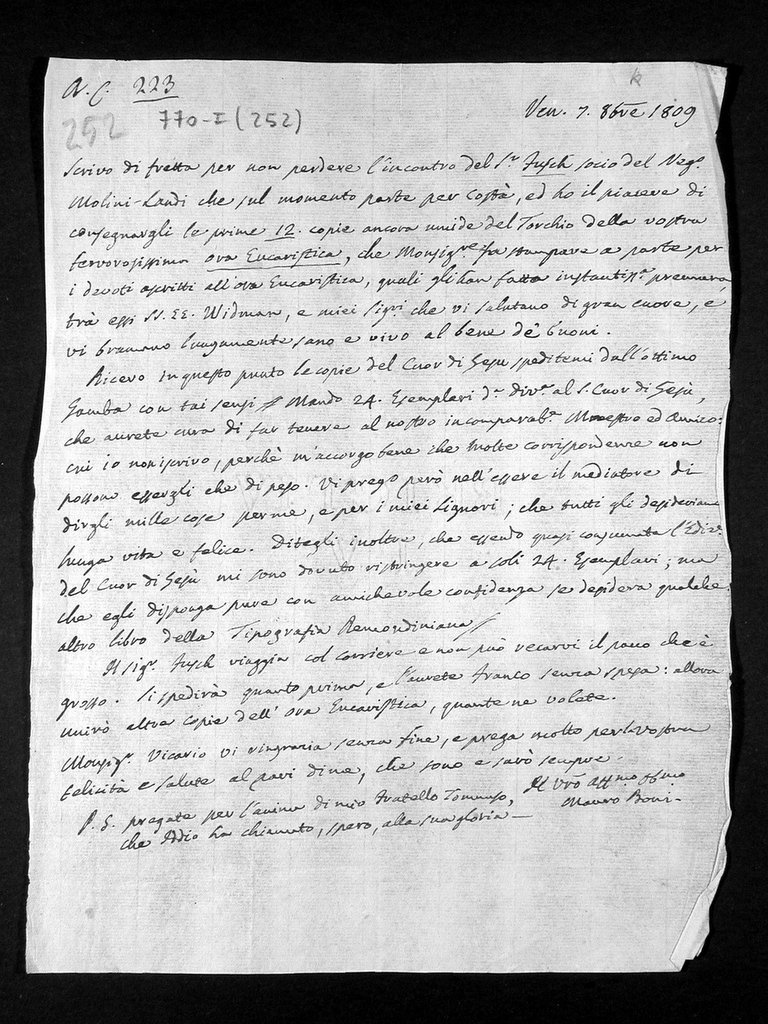 A. C. 223
k
252 770-I (252)
Ven. 7. 8bre 1809
Scrivo di fretta per non perdere l'incontro del Sr Fusch socio del Negº.
Molini-Landi che sul momento parte per costà, ed ho il piacere di
consegnargli le prime 12. copie ancora umide del Torchio della vostra
fervorosissima ora Eucaristica, che Monsigre fa stampare a parte per
i devoti ascritti all'ora Eucaristica, quali gli han fatta instantisª. premura,
trà essi SS. EE. Widman, e miei Sigri che vi salutano di gran cuore, e
vi bramano lungamente sano e vivo al bene de' buoni.
Ricevo in questo punto le copie del Cuor di Gesù speditemi dall'ottimo
Gamba con tai sensi // Mando 24. Esemplari dª. divª. al S. Cuor di Gesù,
che avrete cura di far tenere al nostro incomparabe. Maestro ed Amico:
cui io non iscrivo, perchè m'accorgo bene che molte corrispondenze non
possono essergli che di peso. Vi prego però nell'essere il mediatore di
dirgli mille cose per me, e per i miei Signori; che tutti gli desideriamo
lunga vita e felice. Ditegli inoltre, che essendo quasi consumata l'Edizª.
del Cuor di Gesù mi sono dovuto ristringere a soli 24. Esemplari; ma
che egli disponga pure con amichevole confidenza se desidera qualche
altro libro della Tipografia Remondiniana //
Il Sigr. Fusch viaggia col corriere e non può recarvi il pacco che è
grosso. Si spedirà quanto prima, e l'avrete franco senza spesa: allora
unirò altre copie dell'ora Eucaristica, quante ne volete.
Monsigr. Vicario vi ringrazia senza fine, e prega molto per la vostra
felicità e salute al pari di me, che sono e sarò sempre.
Il Vrõ affmo ossmo
Mauro Boni.
P. S. pregate per l'anima di mio fratello Tommaso,
che Iddio ha chiamato, spero, alla sua gloria —